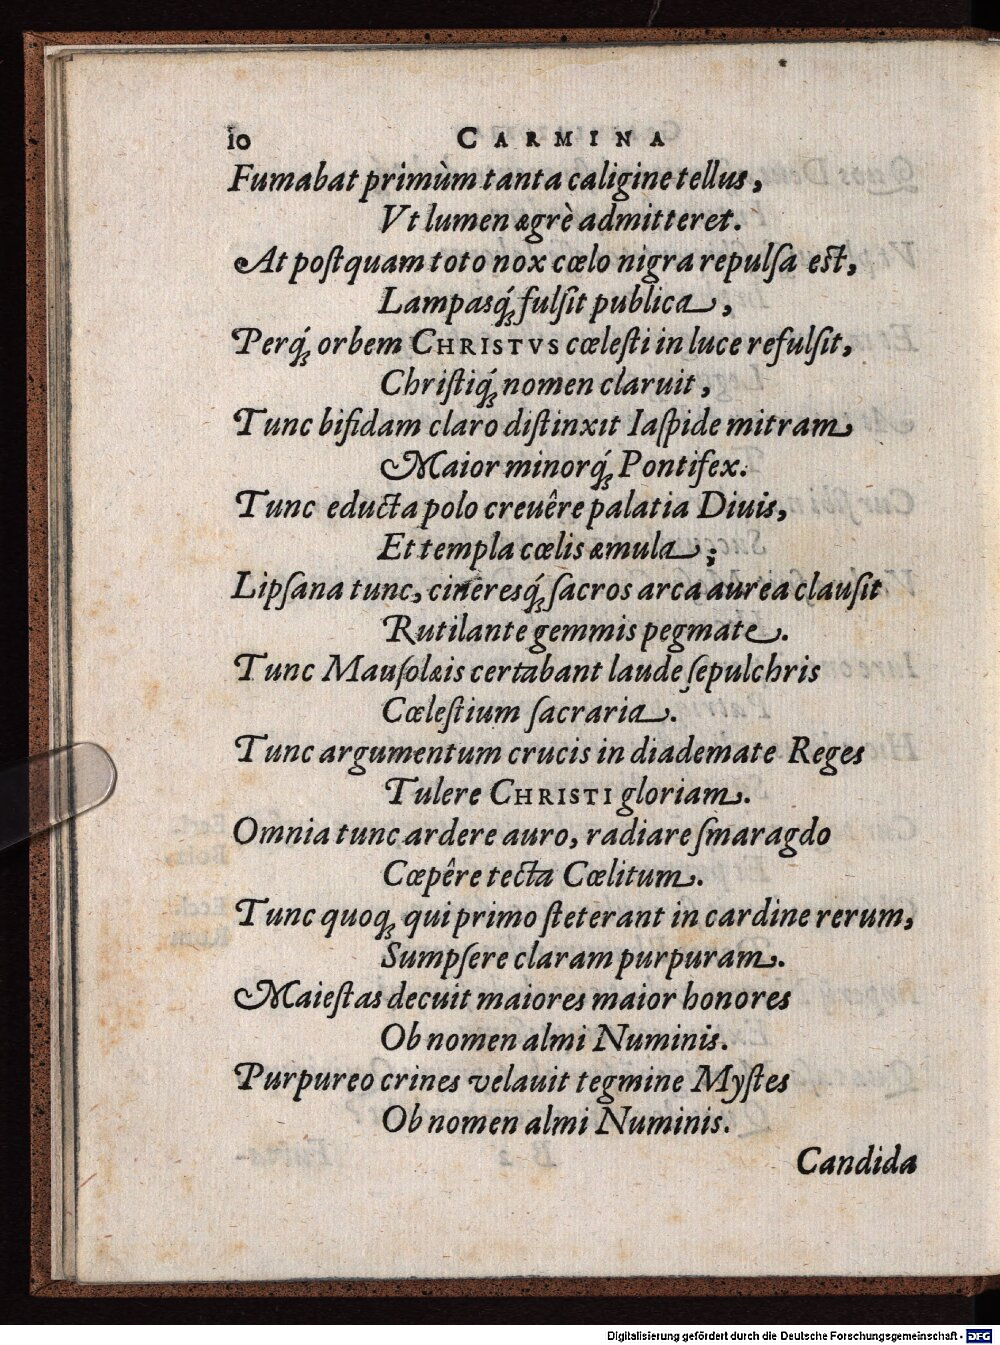 10 CARMINA
Fumabat primùm tanta caligine tellus,
Vt lumen ægrè admitteret.
At postquam toto nox cœlo nigra repulsa est,
Lampasq́; fulsit publica,
Perq́; orbem CHRISTVS cœlesti in luce refulsit,
Christiq́; nomen claruit,
Tunc bifidam claro distinxit Iaspide mitram
Maior minorq́; Pontifex.
Tunc educta polo creuêre palatia Diuis,
Et templa cœlis æmula;
Lipsana tunc, cineresq́; sacros arca aurea clausit
Rutilante gemmis pegmate.
Tunc Mausolæis certabant laude sepulchris
Cœlestium sacraria.
Tunc argumentum crucis in diademate Reges
Tulere CHRISTI gloriam.
Omnia tunc ardere auro, radiare smaragdo
Cœpêre tecta Cœlitum.
Tunc quoq; qui primo steterant in cardine rerum,
Sumpsere claram purpuram.
Maiestas decuit maiores maior honores
Ob nomen almi Numinis.
Purpureo crines velauit tegmine Mystes
Ob nomen almi Numinis.
Candida
Digitalisierung gefördert durch die Deutsche Forschungsgemeinschaft - DFG